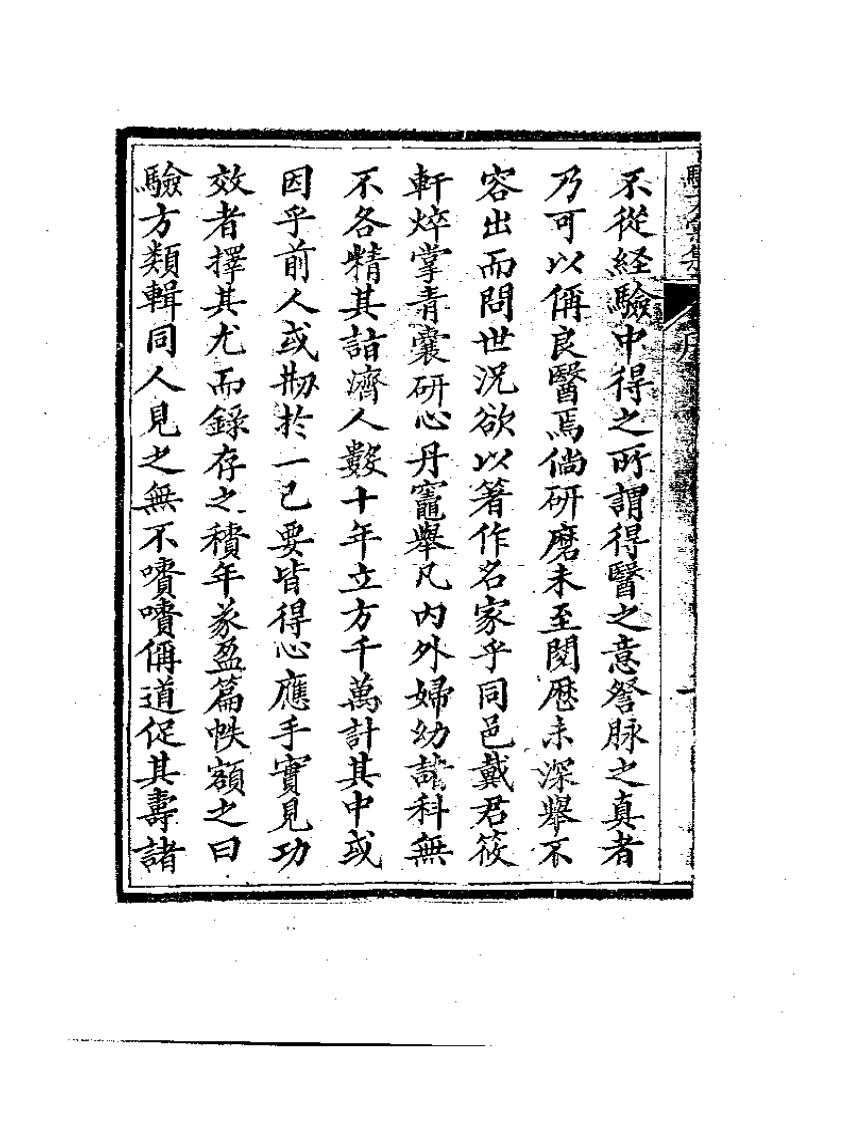 不從経驗中得之所謂得醫之意詧脉之真者
乃可以偁良醫焉倘研磨未至閱歴未深舉不
容出而問世况欲以箸作名家乎同邑戴君筱
軒焠掌青囊研心丹竈舉凡内外婦幼諸科無
不各精其詣濟人數十年立方千萬計其中或
因乎前人或刱於一己要皆得心應手實見功
效者擇其尤而録存之積年遂盈篇帙額之曰
驗方類輯同人見之無不嘖嘖偁道促其壽諸